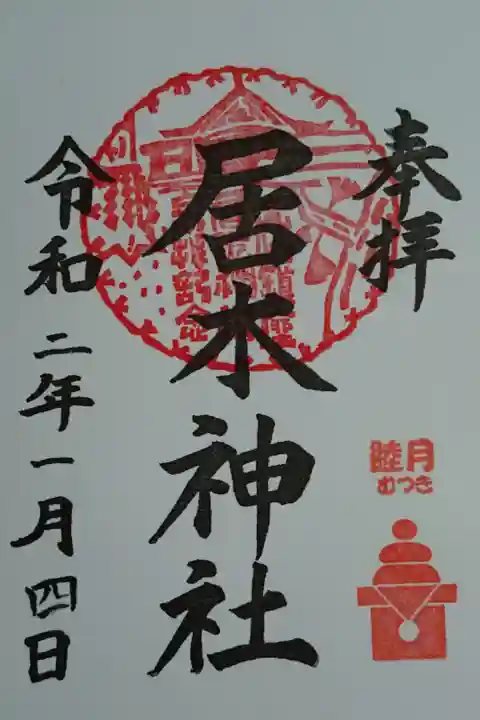 奉拝
居木神社
令和二年一月四日
睦月
むつき